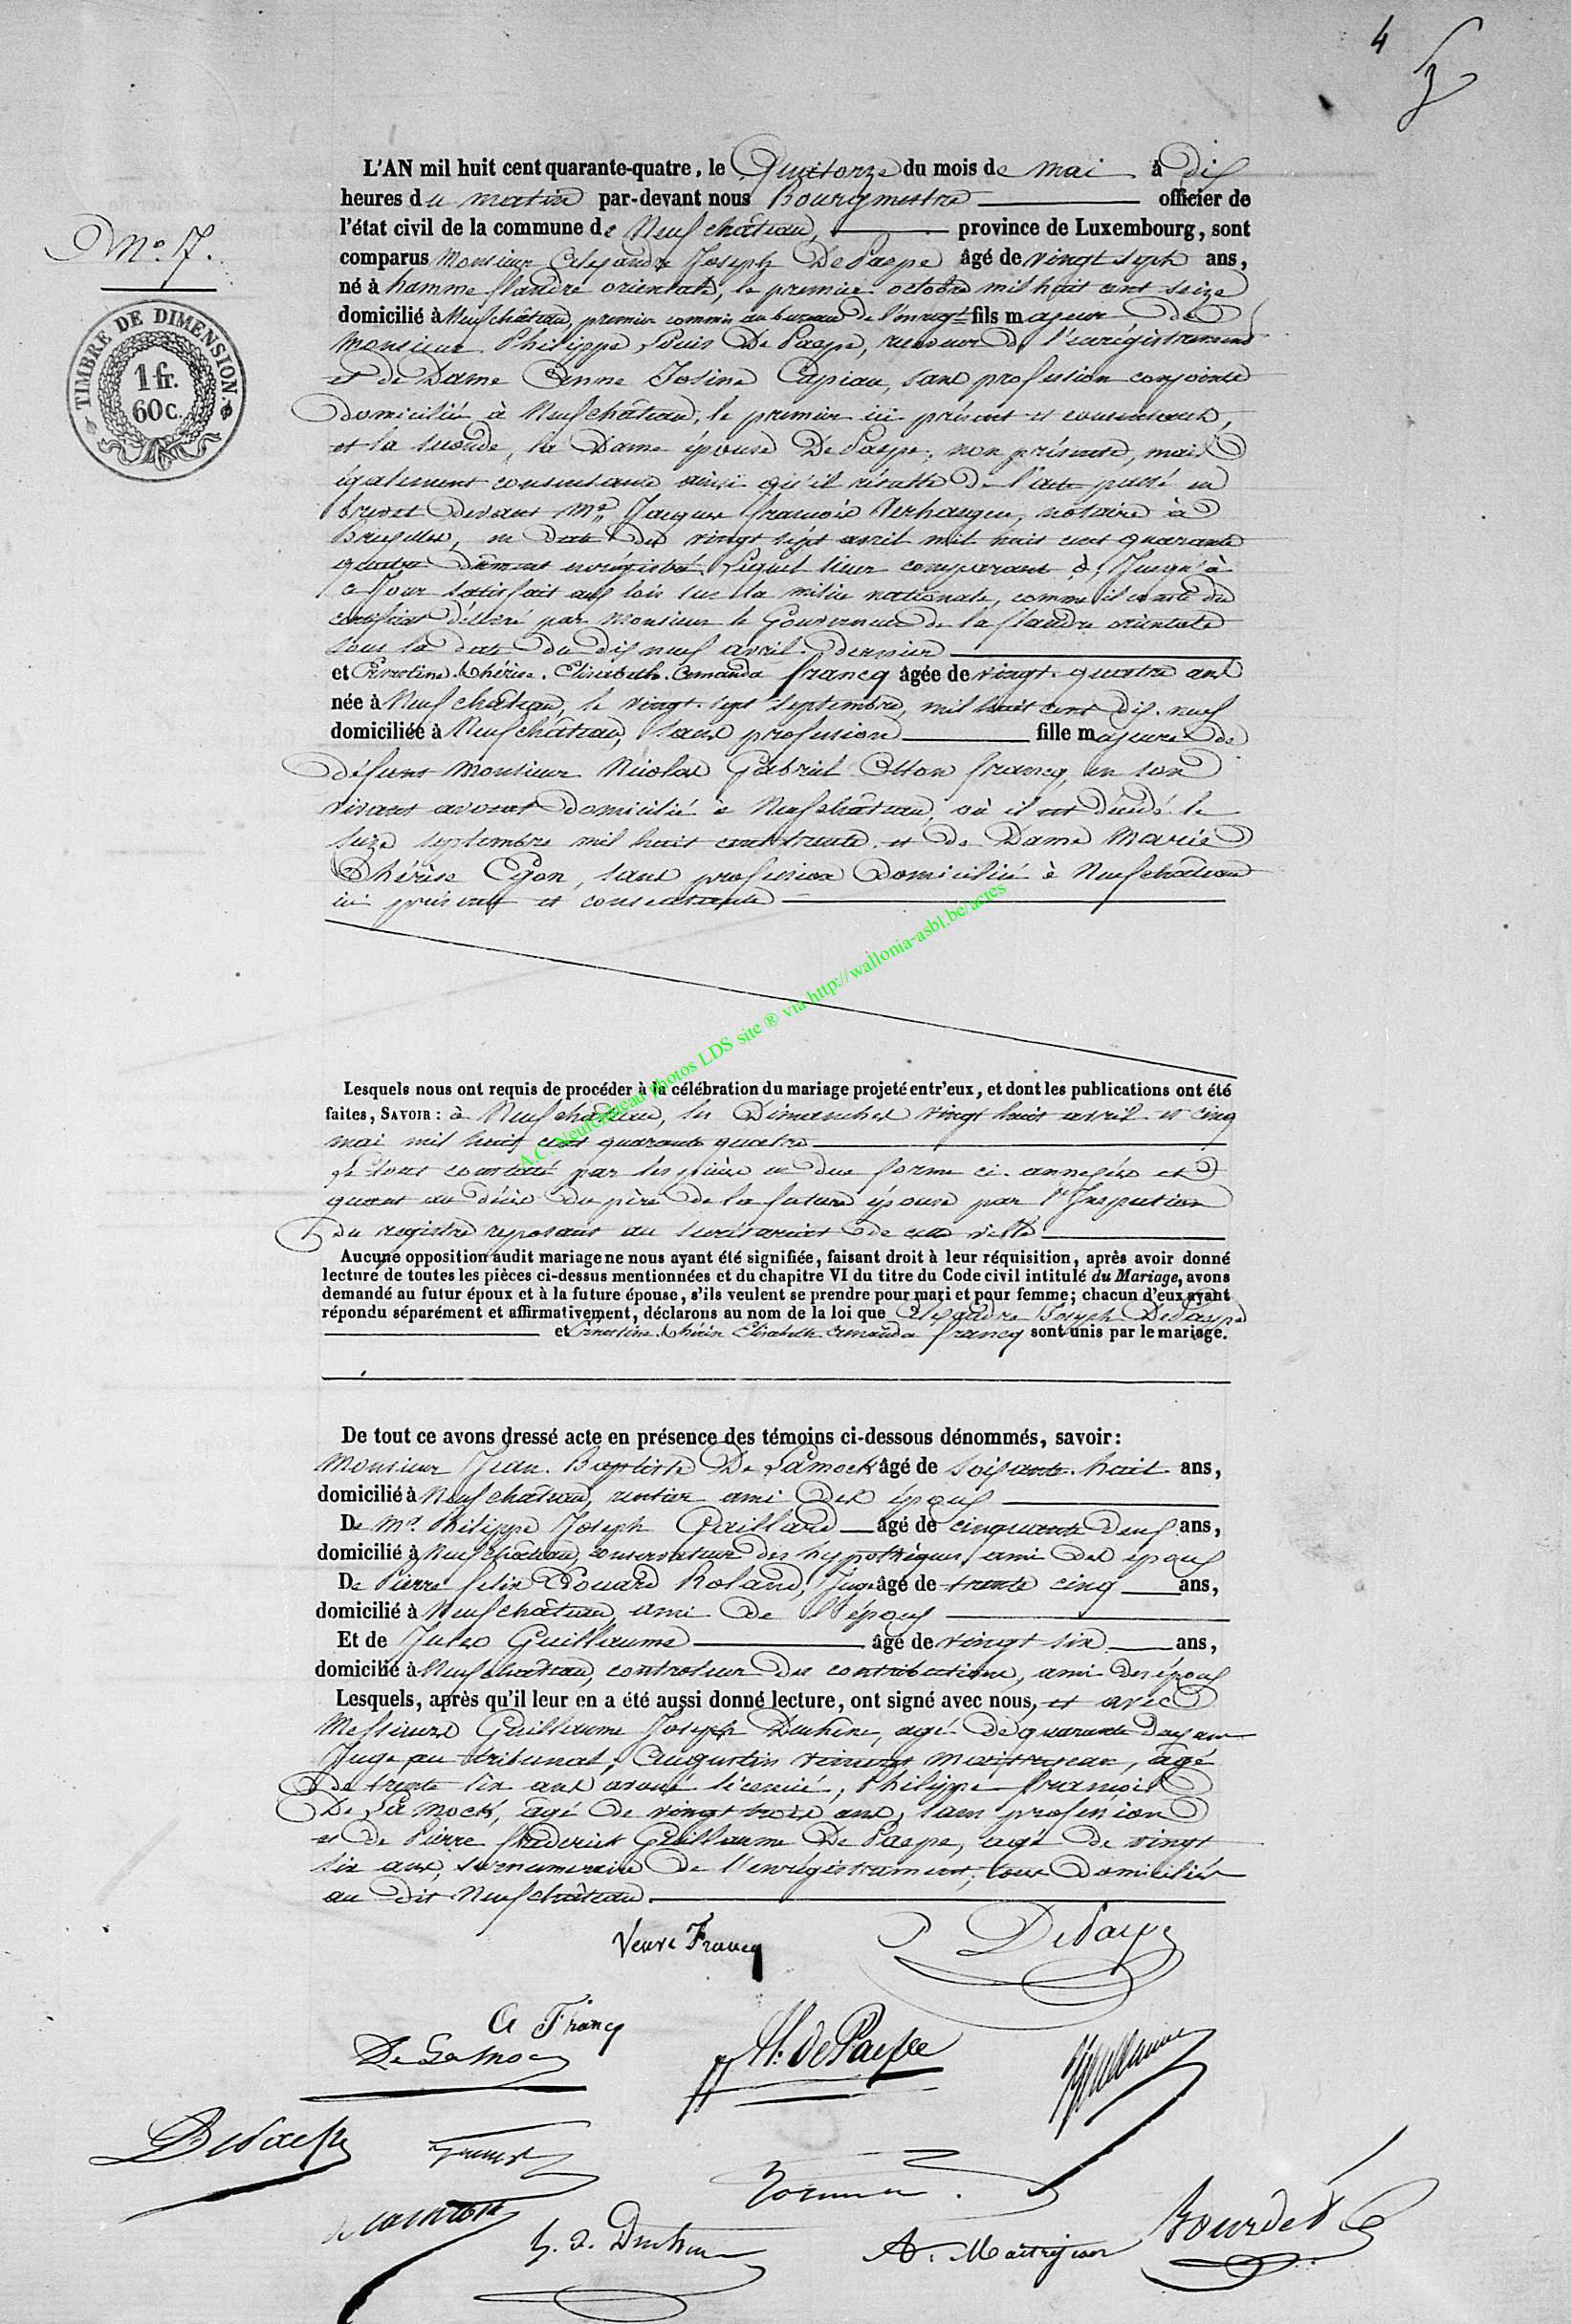 4
L'AN mil huit cent quarante-quatre, le Quatorze du mois de mai à dix
heures du matin par-devant nous Bourgmestre officier de
l'état civil de la commune de Neufchâteau, province de Luxembourg, sont
comparus Monsieur Alexandre Joseph De Paepe âgé de vingt sept ans,
né à hamme flandre orientale, le premier octobre mil huit cent seize
domicilié à Neufchâteau, premier commis au bureau de l'enregt fils majeur de
Monsieur Philippe Louis De Paepe, receveur de l'enrégistrement
et de Dame Anne Josine Capiau, sans profession conjoints
domiciliés à Neufchâteau, le premier ici présent et consentant,
et la seconde, la Dame épouse De Paepe, non présente, mais
également consentante ainsi qu'il résulte de l'acte passé en
brevet devant Me Jacques françois Verhaegen, notaire à
Bruxelles, en date du vingt sept avril mil huit cent quarante
quatre dûment enrégistré. Lequel sieur comparant a, Jusqu'à
ce Jour satisfait aux lois sur la milice nationale, comme il conste du
certificat délivré par Monsieur le Gouverneur de la flandre orientale
sous la date du dix neuf avril dernier
et Ernestine. Thérèse. Elisabeth. Amanda francq âgée de vingt-quatre ans
née à Neufchâteau, le vingt-sept septembre, mil huit cent dix-neuf
domiciliée à Neufchâteau, sans profession fille majeure de
défunt Monsieur Nicolas Gabriel Otton francq, en son
vivant avocat domicilié à Neufchâteau, où il est décédé le
seize septembre mil huit cent trente et de Dame Marie
Thérèse Ozon, sans profession domiciliée à Neufchâteau
ici présente et consentante
No. 7.
TIMBRE DE DIMENSION.
1 fr.
60 c.
A.C. Neufchâteau photos LDS site ® via http://wallonia-asbl.be/actes
Lesquels nous ont requis de procéder à la célébration du mariage projeté entr'eux, et dont les publications ont été
faites, SAVOIR : à Neufchâteau, les Dimanches vingt huit avril et cinq
mai mil huit cent quarante quatre
le tout constaté par les pièces en due forme ci-annexées et
quant au décès du père de la future épouse par l'Inspection
du registre reposant au secrétariat de cette ville
Aucune opposition audit mariage ne nous ayant été signifiée, faisant droit à leur réquisition, après avoir donné
lecture de toutes les pièces ci-dessus mentionnées et du chapitre VI du titre du Code civil intitulé du Mariage, avons
demandé au futur époux et à la future épouse, s'ils veulent se prendre pour mari et pour femme; chacun d'eux ayant
répondu séparément et affirmativement, déclarons au nom de la loi que Alexandre Joseph De Paepe
et Ernestine. Thérèse Elisabeth Amanda francq sont unis par le mariage.
De tout ce avons dressé acte en présence des témoins ci-dessous dénommés, savoir :
Monsieur Jean-Baptiste De Lamock âgé de soixante-huit ans,
domicilié à Neufchâteau, rentier ami des époux
De Mr. Philippe Joseph Gaillard âgé de cinquante deux ans,
domicilié à Neufchâteau, conservateur des hypothèques, ami des époux
De Pierre felix Edouard Roland, Juge âgé de trente cinq ans,
domicilié à Neufchâteau, ami de l'époux
Et de Jules Guillaume âgé de vingt six ans,
domicilié à Neufchâteau, controleur des contributions, ami des époux
Lesquels, après qu'il leur en a été aussi donné lecture, ont signé avec nous, et avec
Messieurs Guillaume Joseph Duchêne, agé de quarante deux ans
Juge au tribunal, Augustin Maitrejean, agé
de trente six ans avoué licencié, Philippe françois
De Lamock, agé de vingt trois ans, sans profession
et de Pierre frederick Guillaume De Paepe, agé de vingt
six ans, surnumeraire de l'enrégistrement, tous domiciliés
au dit Neufchâteau.
Veuve Francq
P DePaepe
A Francq
De Lamock
Al: de Paepe
JGuillaume
DePaepe
de Lamock
G. J. Duchene
A. Maitrejean
Bourdet